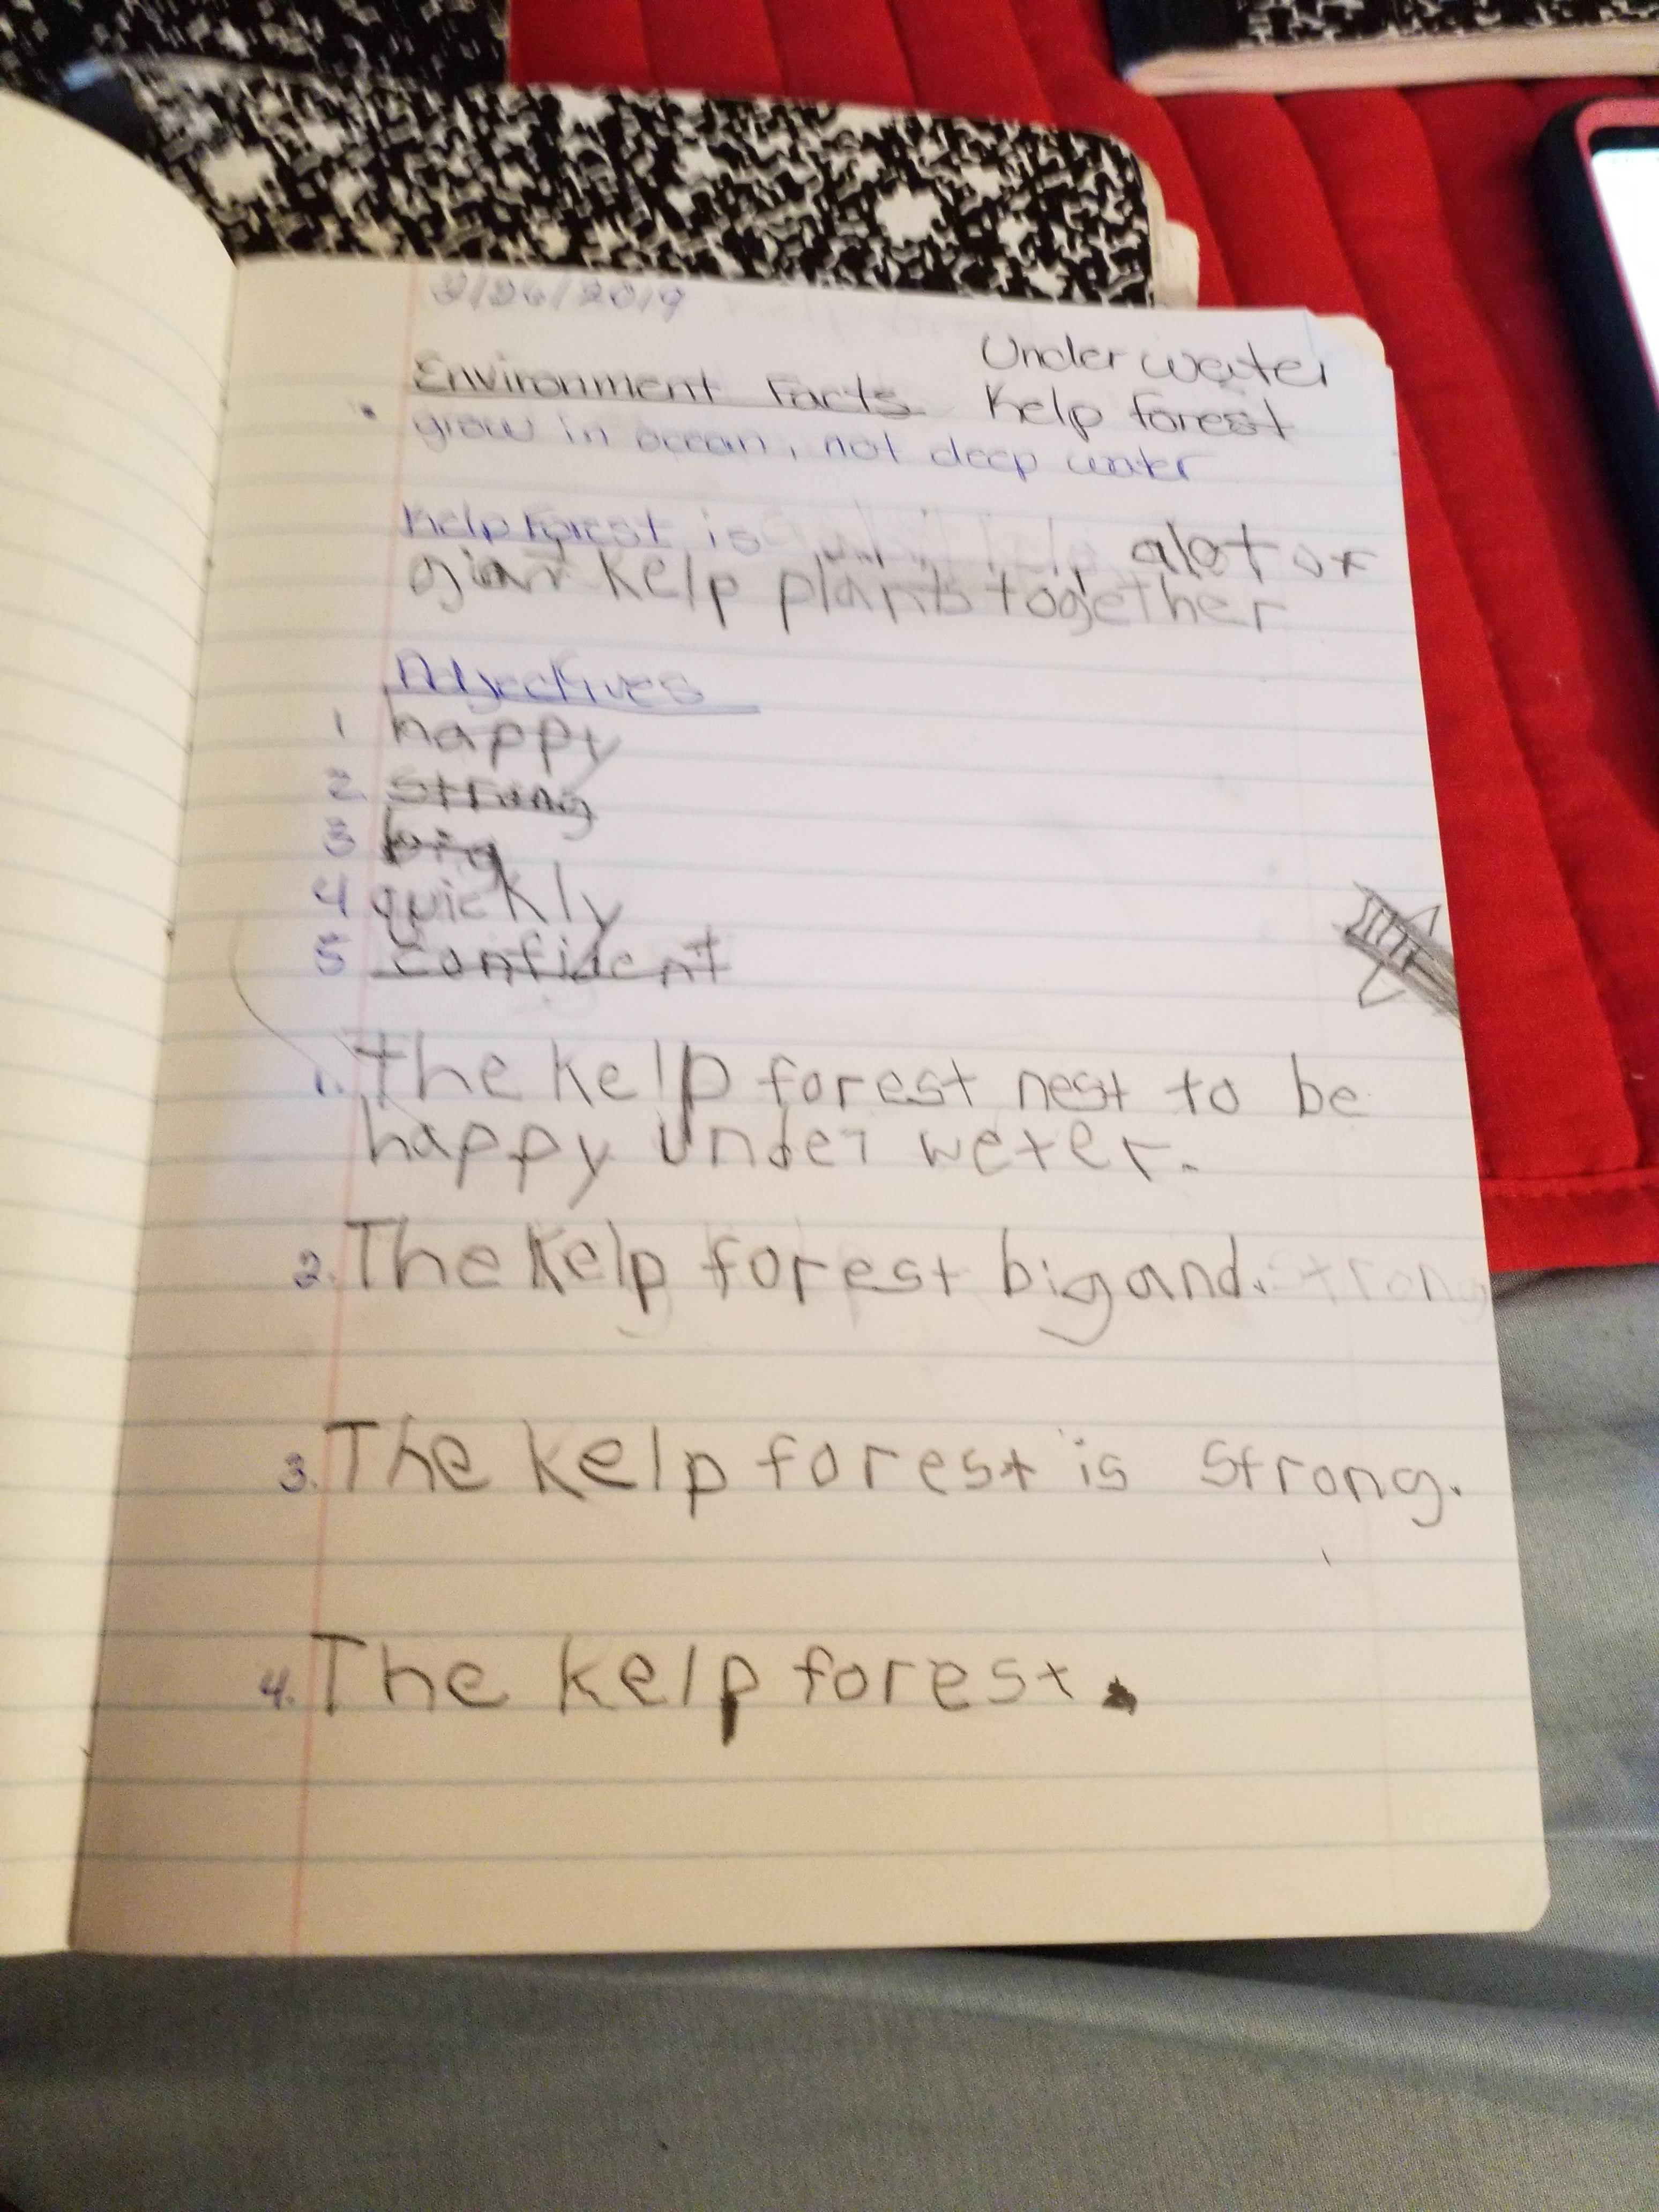 2/26/2019
Under water
Environment Facts Kelp forest
grow in ocean, not deep water
Kelp Forest is alot of
giant Kelp plants together
Adjectives
1 happy
2. strong
3 big
4 quickly
5 confident
1. The kelp forest nest to be
happy under weter.
2. The Kelp forest big and. strong
3. The kelp forest is strong.
4. The kelp forest.